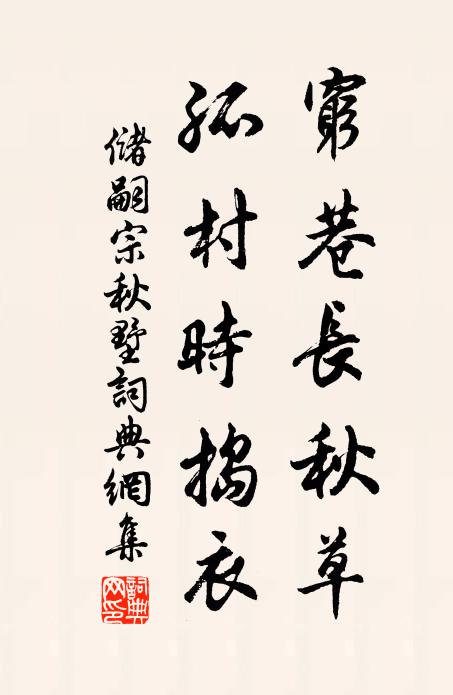 窮巷長秋草
孤村時搗衣
儲嗣宗秋墅詞典網集
詞典網印